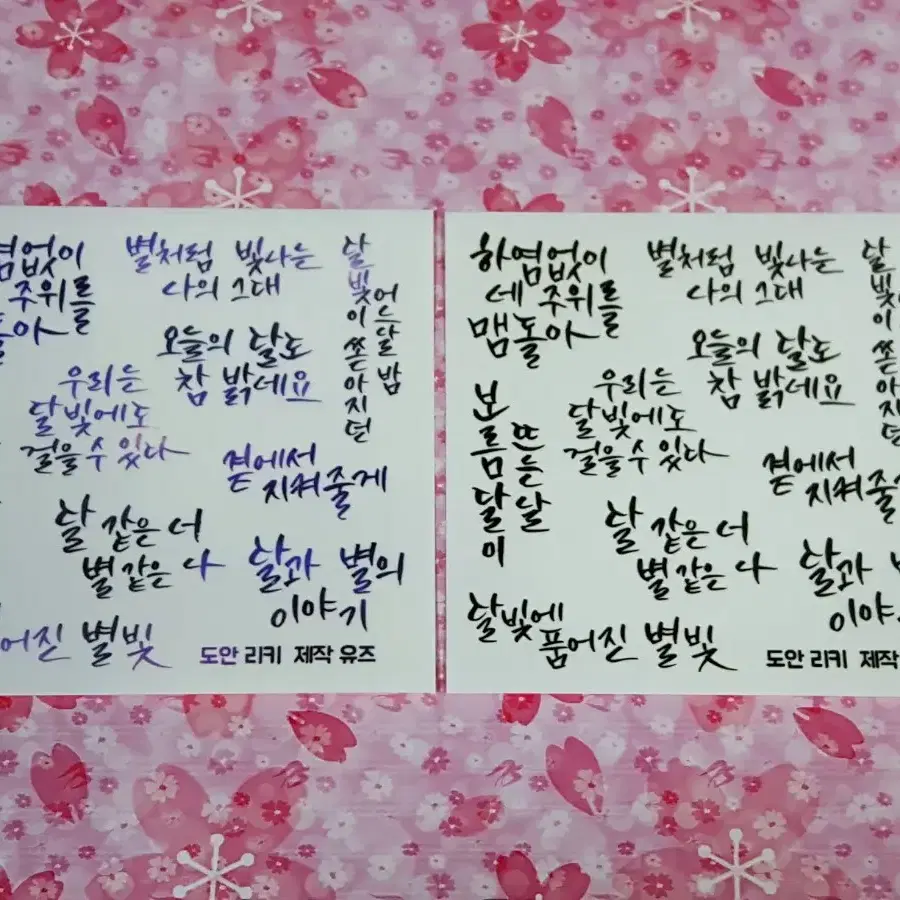 염없이
주위를
돌아
별처럼 빛나는
나의 그대
달빛이 쏟아지던
어느 달밤
오늘의 달도
참 밝네요
우리는
달빛에도
걸을 수 있다
곁에서
지켜줄게
달 같은 너
별 같은 나
달과 별의
이야기
어진 별빛
도안 리키 제작 유즈
하염없이
네 주위를
맴돌아
별처럼 빛나는
나의 그대
달빛이 쏟아지던
오늘의 달도
참 밝네요
우리는
달빛에도
걸을 수 있다
보름달이
뜨는 달
곁에서
지켜줄
달 같은 너
별 같은 나
달과
이야
달빛에
품어진 별빛
도안 리키 제작